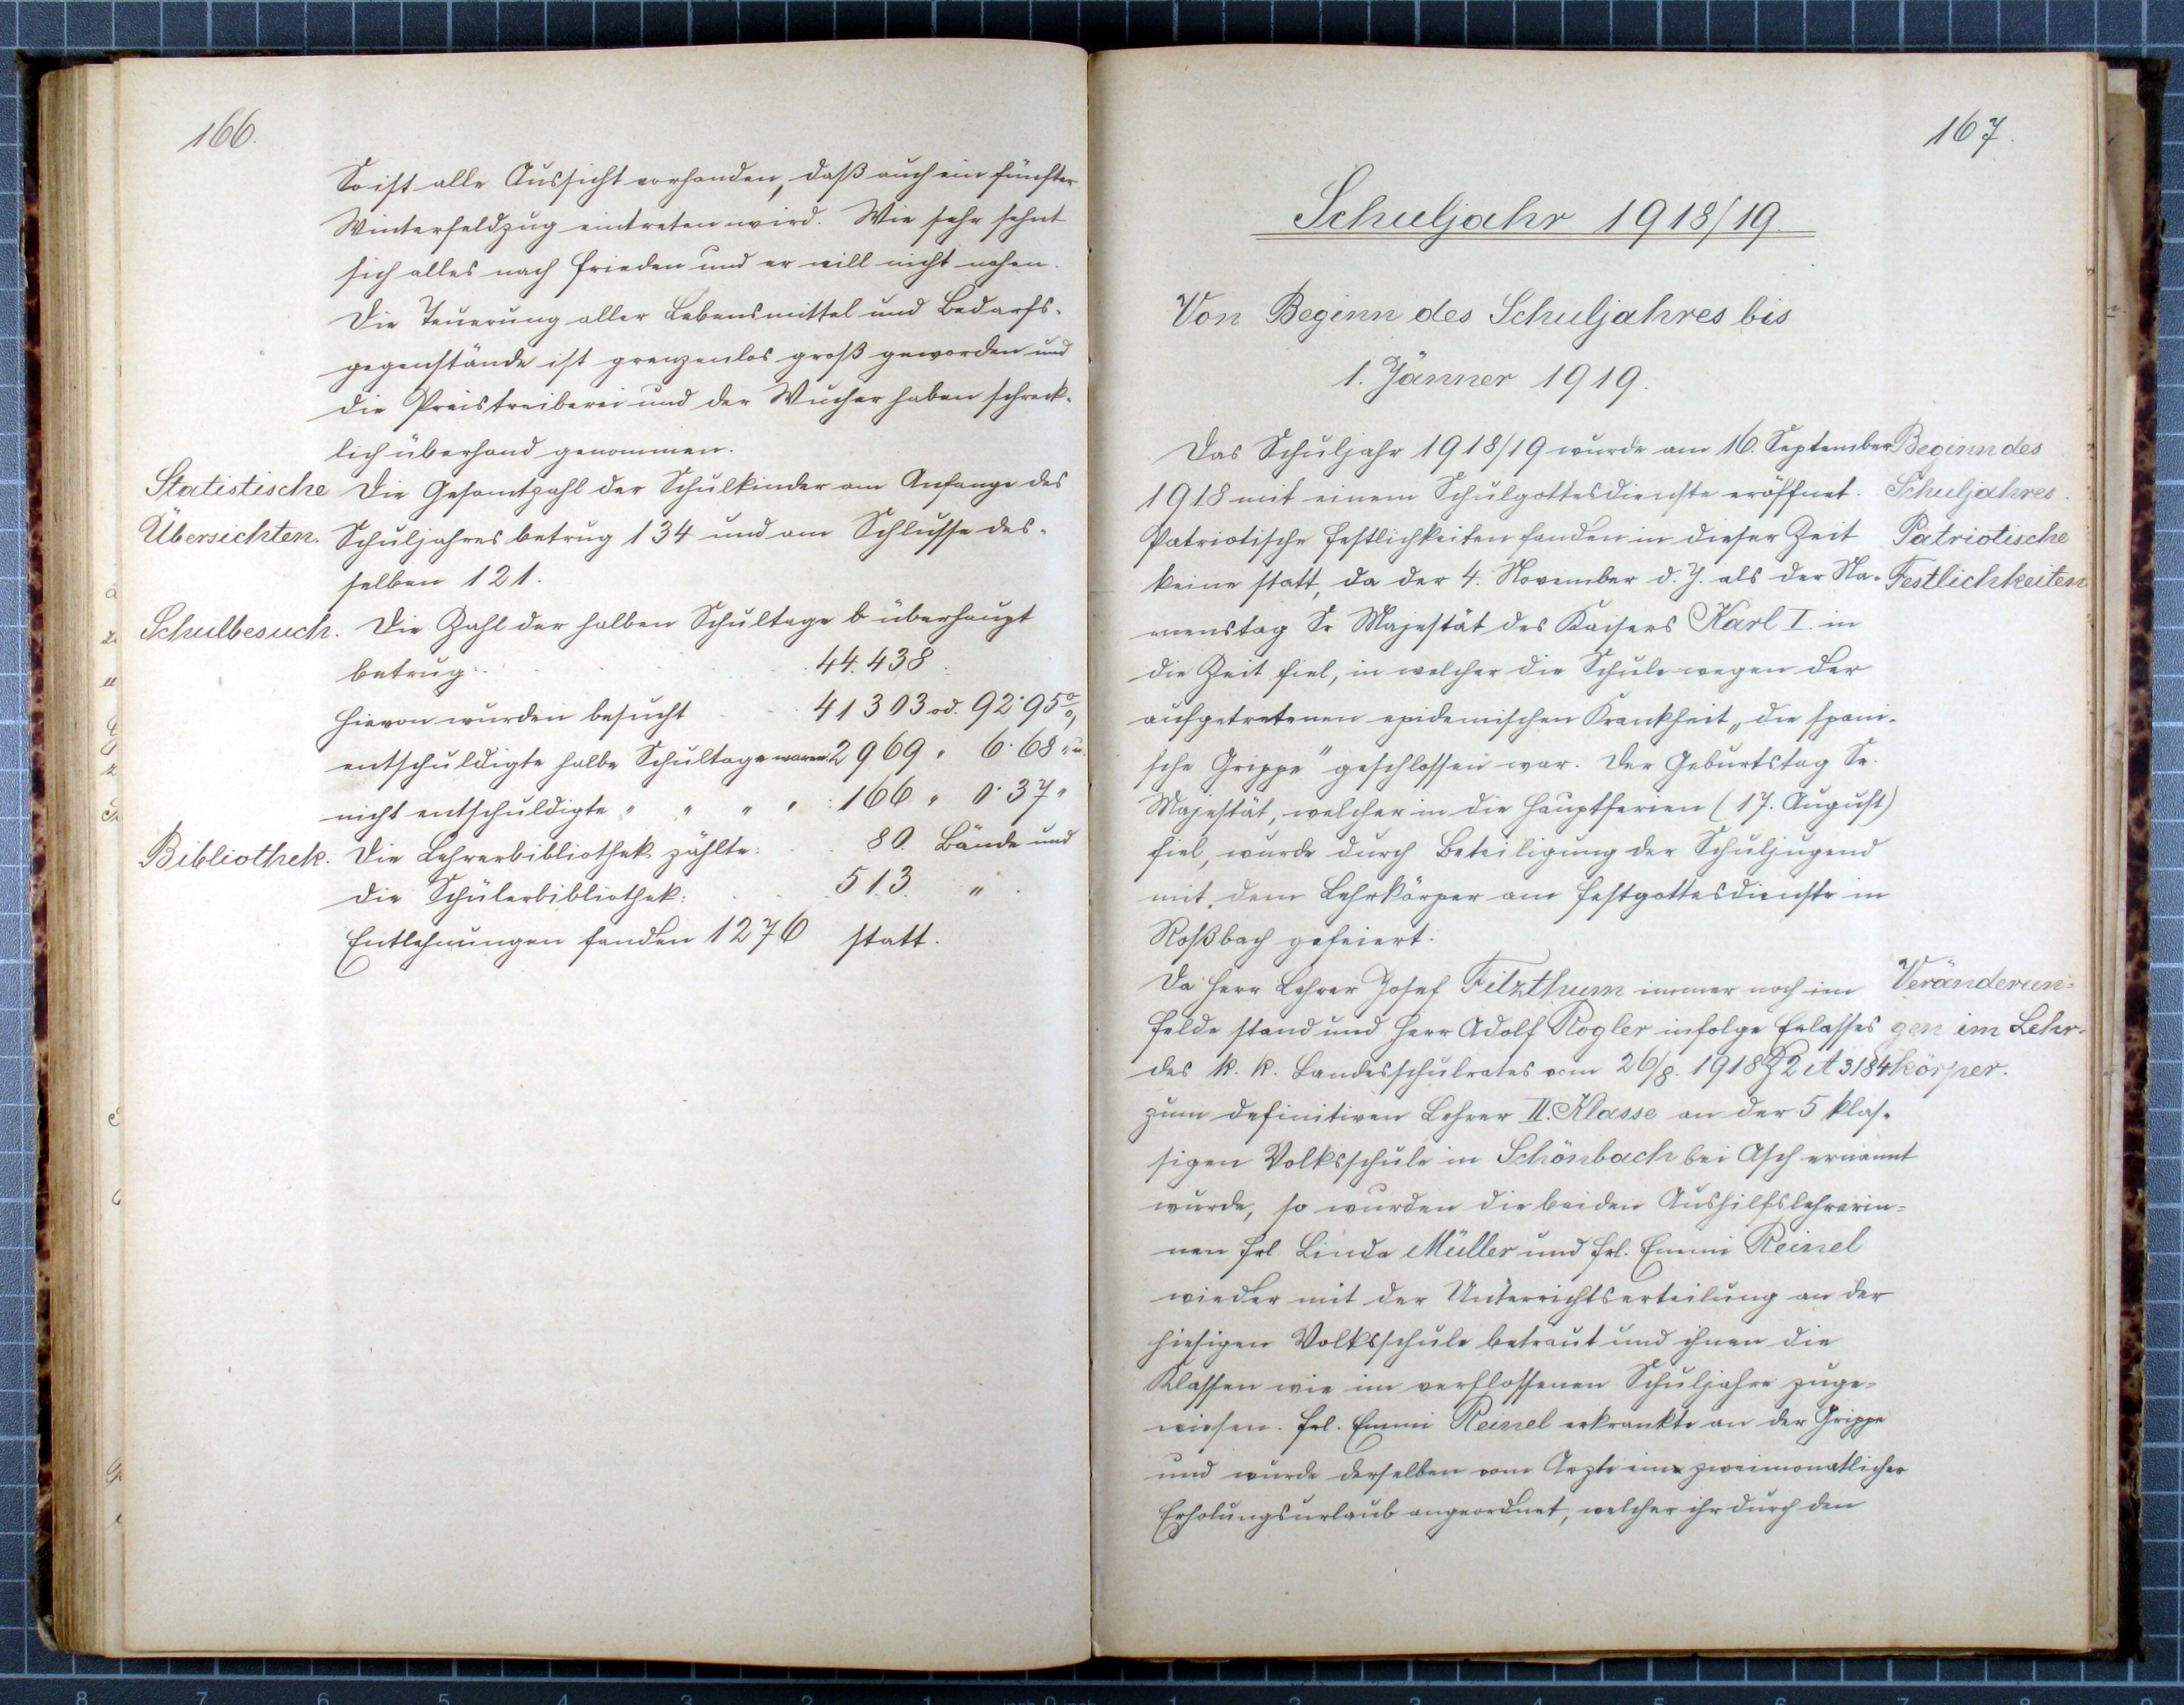 166.
So ist alle Aussicht vorhanden, daß auch ein fünfter
Winterfeldzug eintreten wird. Wie sehr sehnt
sich alles nach Frieden und er will nicht nahen.
Die Teuerung aller Lebensmittel und Bedarfs-
gegenstände ist grenzenlos groß geworden und
die Preistreiberei und der Wucher haben schreck-
lich überhand genommen.
Statistische Die Gesamtzahl der Schulkinder am Anfange des
Übersichten. Schuljahres betrug 134 und am Schlusse des-
selben 121.
Schulbesuch. Die Zahl der halben Schultage b überhaupt
betrug: 44.438.
Hievon wurden besucht 41303 od. 92·95%,
entschuldigte halbe Schultage waren 2969 " 6·68 " u.
nicht entschuldigte " " " " : 166 " 0·37 "
Bibliothek. Die Lehrerbibliothek zählte: 80. Bände und
die Schülerbibliothek: 513. " .
Entlehnungen fanden 1276 statt.
167.
Schuljahr 1918/19.
Von Beginn des Schuljahres bis
1. Jänner 1919.
Das Schuljahr 1918/19 wurde am 16. September Beginn des
1918 mit einem Schulgottesdienste eröffnet. Schuljahres.
Patriotische Festlichkeiten fanden in dieser Zeit Patriotische
keine statt, da der 4. November d. J. als der Na- Festlichkeiten
menstag Sr Majestät des Kaisers Karl I. in
die Zeit fiel, in welcher die Schule wegen der
aufgetretenen epidemischen Krankheit „die spani-
sche Grippe" geschlossen war. Der Geburtstag Sr.
Majestät, welcher in die Hauptferien (17. August)
fiel, wurde durch Beteiligung der Schuljugend
mit dem Lehrkörper am Festgottesdienste in
Roßbach gefeiert.
Da Herr Lehrer Josef Filzthum immer noch im Veränderun=
Felde stand und Herr Adolf Rogler infolge Erlasses gen im Lehr-
des k. k. Landesschulrates vom 26/8. 1918 Z 2 A 3184 körper.
zum definitiven Lehrer II. Klasse an der 5 klas-
sigen Volksschule in Schönbach bei Asch ernannt
wurde, so wurden die beiden Aushilfslehrerin=
nen Frl. Linda Müller und Frl. Emmi Reinel
wieder mit der Unterrichtserteilung an der
hiesigen Volksschule betraut und ihnen die
Klassen wie im verflossenen Schuljahre zuge=
wiesen. Frl. Emmi Reinel erkrankte an der Grippe
und wurde derselben vom Arzte ein zweimonatlicher
Erholungsurlaub angeordnet, welcher ihr durch den